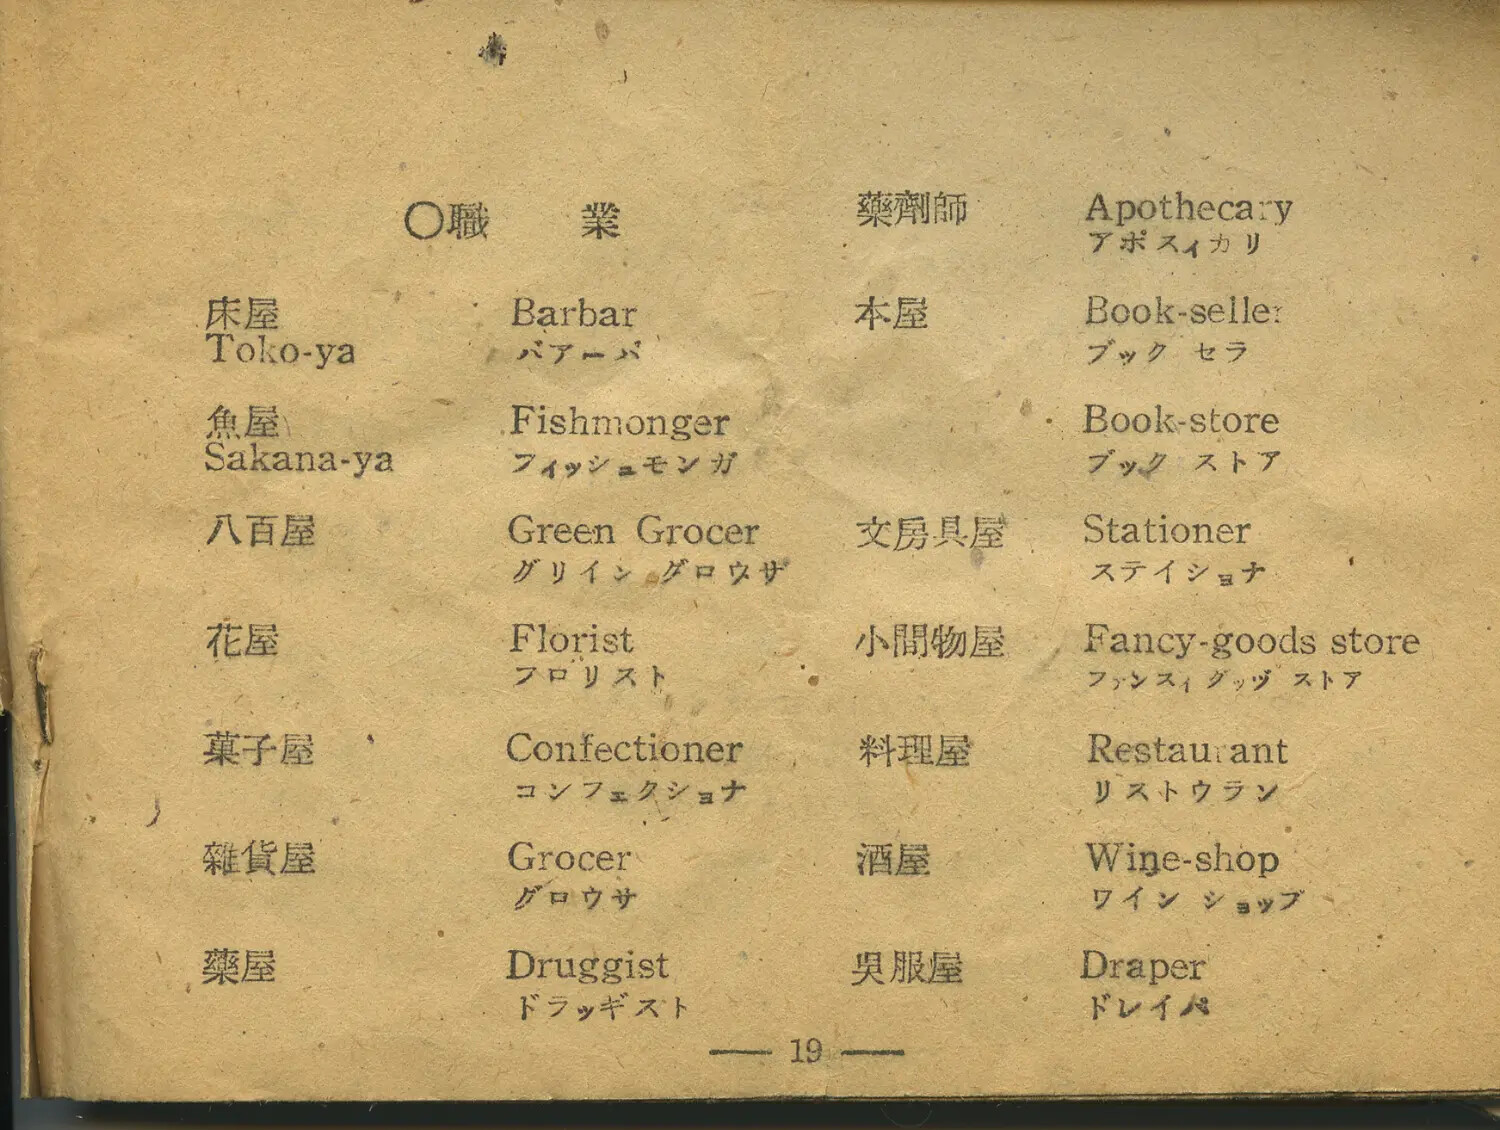 〇職 業
床屋 Barbar
Toko-ya バアーバ
魚屋 Fishmonger
Sakana-ya フィッシュモンガ
八百屋 Green Grocer
グリイン グロウサ
花屋 Florist
フロリスト
菓子屋 Confectioner
コンフェクショナ
雜貨屋 Grocer
グロウサ
藥屋 Druggist
ドラッギスト
藥劑師 Apothecary
アポスィカリ
本屋 Book-seller
ブック セラ
Book-store
ブック ストア
文房具屋 Stationer
ステイショナ
小間物屋 Fancy-goods store
ファンスィグッヅ ストア
料理屋 Restaurant
リストウラン
酒屋 Wine-shop
ワイン ショップ
吳服屋 Draper
ドレイパ
— 19 —